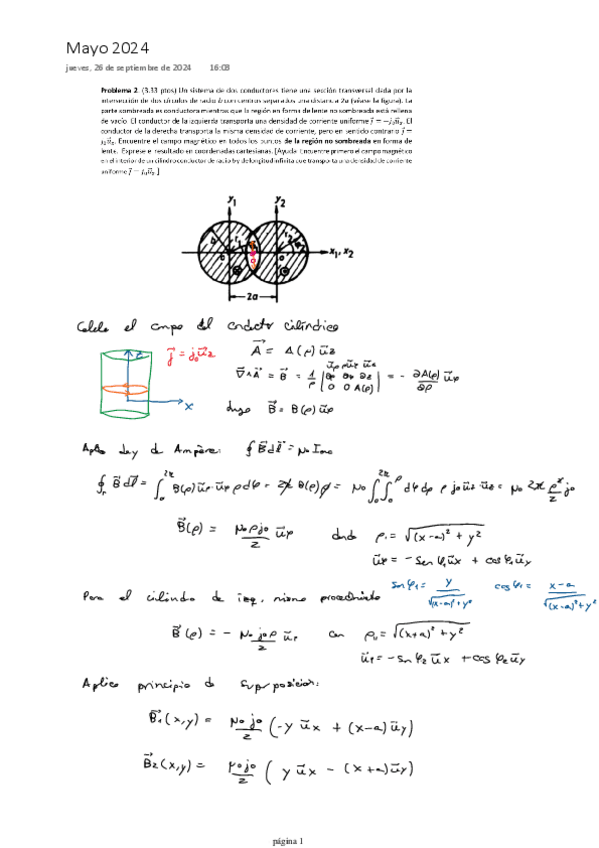 Mayo 2024
jueves, 26 de septiembre de 2024 16:03
Problema 2. (3.33 ptos) Un sistema de dos conductores tiene una sección transversal dada por la
intersección de dos círculos de radio b con centros separados una distancia 2a (véase la figura). La
parte sombreada es conductora mientras que la región en forma de lente no sombreada está rellena
de vacío. El conductor de la izquierda transporta una densidad de corriente uniforme j⃗ = −j₀u⃗z. El
conductor de la derecha transporta la misma densidad de corriente, pero en sentido contrario j⃗ =
j₀u⃗z. Encuentre el campo magnético en todos los puntos de la región no sombreada en forma de
lente. Exprese el resultado en coordenadas cartesianas. [Ayuda: Encuentre primero el campo magnético
en el interior de un cilindro conductor de radio b y de longitud infinita que transporta una densidad de corriente
uniforme j⃗ = j₀u⃗z.]
y₁ y₂
r₁ r₂
x₁, x₂
2a
Calculo el campo del conductor cilíndrico
j⃗ = j₀ u⃗z
z
x
A⃗ = A(ρ) u⃗z
∇⃗∧A⃗ = B⃗ = 1/ρ | u⃗ρ ρu⃗φ u⃗z ; ∂ρ ∂φ ∂z ; 0 0 A(ρ) | = − ∂A(ρ)/∂ρ u⃗φ
luego B⃗ = B(ρ) u⃗φ
Aplico Ley de Ampère: ∮ B⃗ dl⃗ = μ₀ I
∮ B⃗ dl⃗ = ∫₀^2π B(ρ) u⃗φ · u⃗φ ρ dφ = 2π B(ρ) ρ = μ₀ ∫₀^2π ∫₀^ρ dφ dρ ρ j₀ u⃗z · u⃗z = μ₀ 2π ρ²/2 j₀
B⃗(ρ) = μ₀ρj₀/2 u⃗φ donde ρ₁ = √((x−a)² + y²)
u⃗φ = − sen φ₁ u⃗x + cos φ₁ u⃗y
sen φ₁ = y/√((x−a)²+y²) cos φ₁ = x−a/√((x−a)²+y²)
Para el cilindro de izq. mismo procedimiento
B⃗(ρ) = − μ₀j₀ρ/2 u⃗φ con ρ₂ = √((x+a)² + y²)
u⃗φ = − sen φ₂ u⃗x + cos φ₂ u⃗y
Aplico principio de superposición:
B⃗₁(x,y) = μ₀j₀/2 (−y u⃗x + (x−a) u⃗y)
B⃗₂(x,y) = μ₀j₀/2 ( y u⃗x − (x+a) u⃗y)
página 1